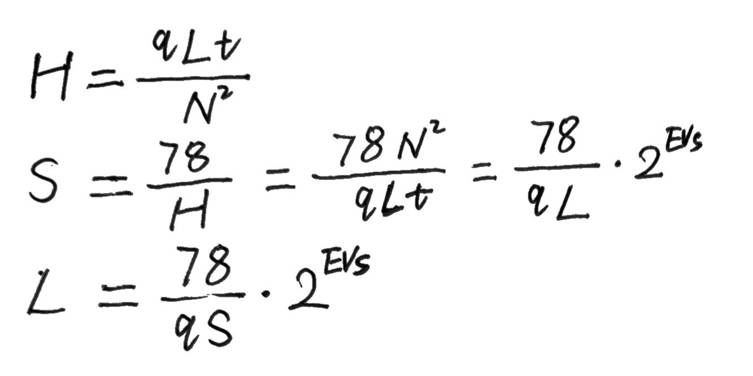 H = qLt / N²
S = 78 / H = 78 N² / qLt = 78 / qL · 2^EVs
L = 78 / qS · 2^EVs